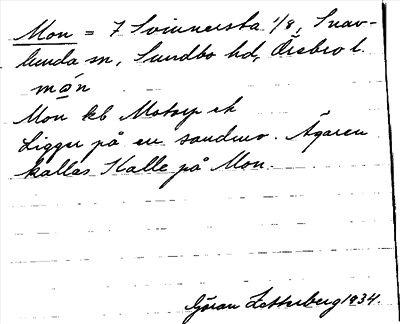 Mon = 7 Svinnersta 1/8, Snav-
lunda sn, Sundbo hd, Örebro l.
mǫ́n
Mon kb Motorp ek
Ligger på en sandmo. Ägaren
kallas Kalle på Mon.
Göran Zetterberg 1934.